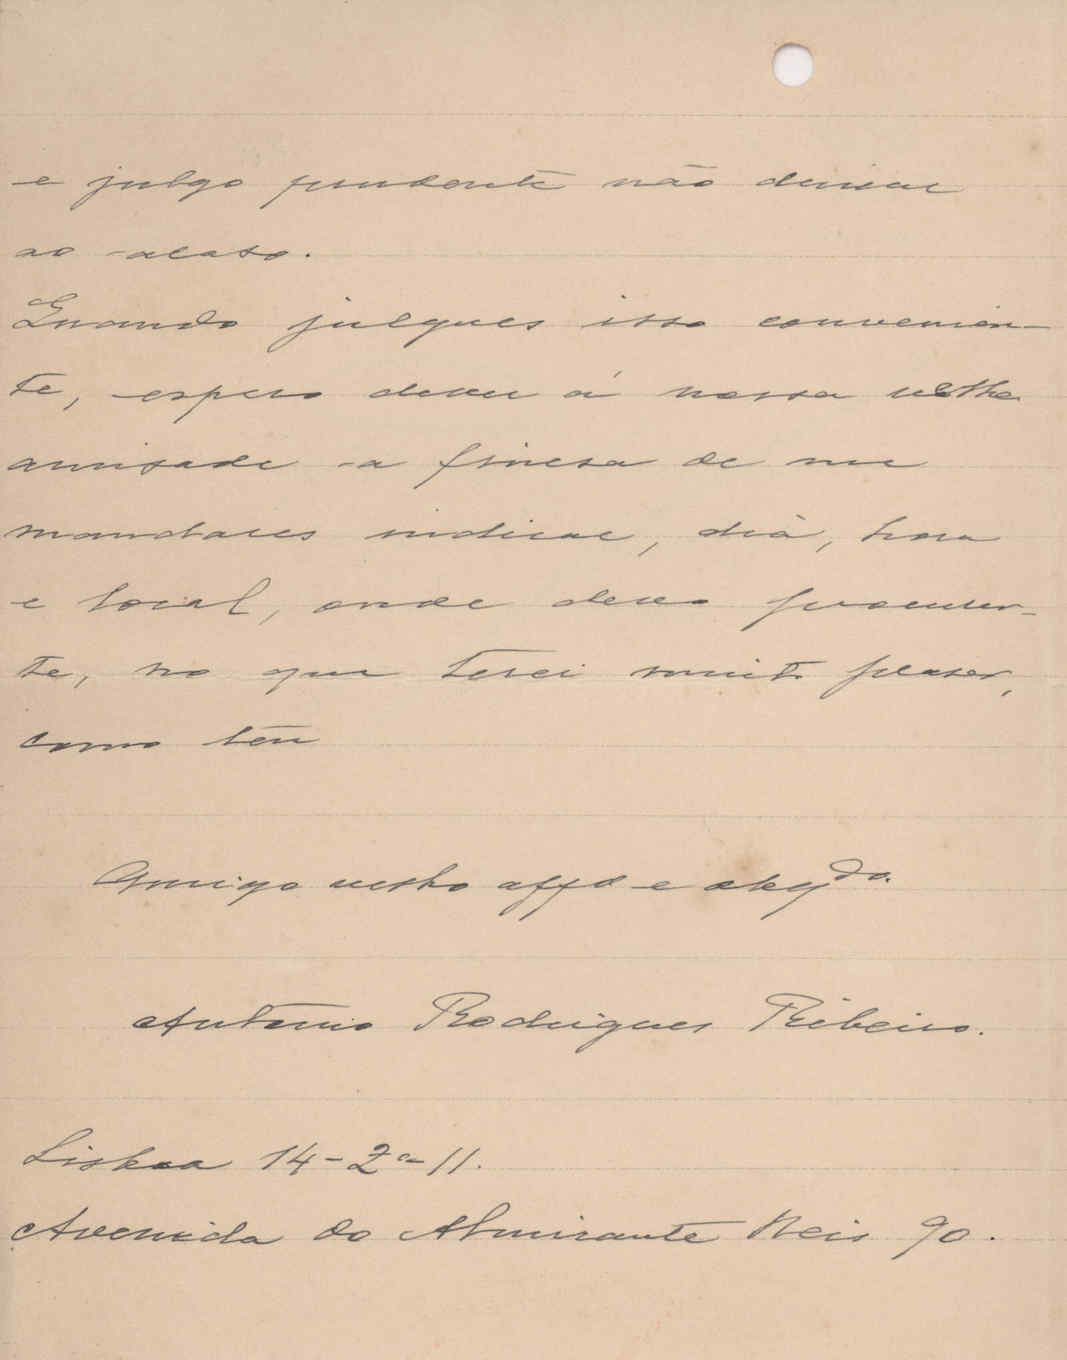 e julgo prudente não deixar
ao acaso.
Quando julgues isso convenien-
te, espero dever á nossa velha
amisade a finesa de me
mandares indicar, dia, hora
e local, onde devo procurar-
te, no que terei muito praser,
como teu
Amigo velho affº e obgdo.
Antonio Rodrigues Ribeiro.
Lisboa 14-2º-11.
Avenida do Almirante Reis 90.